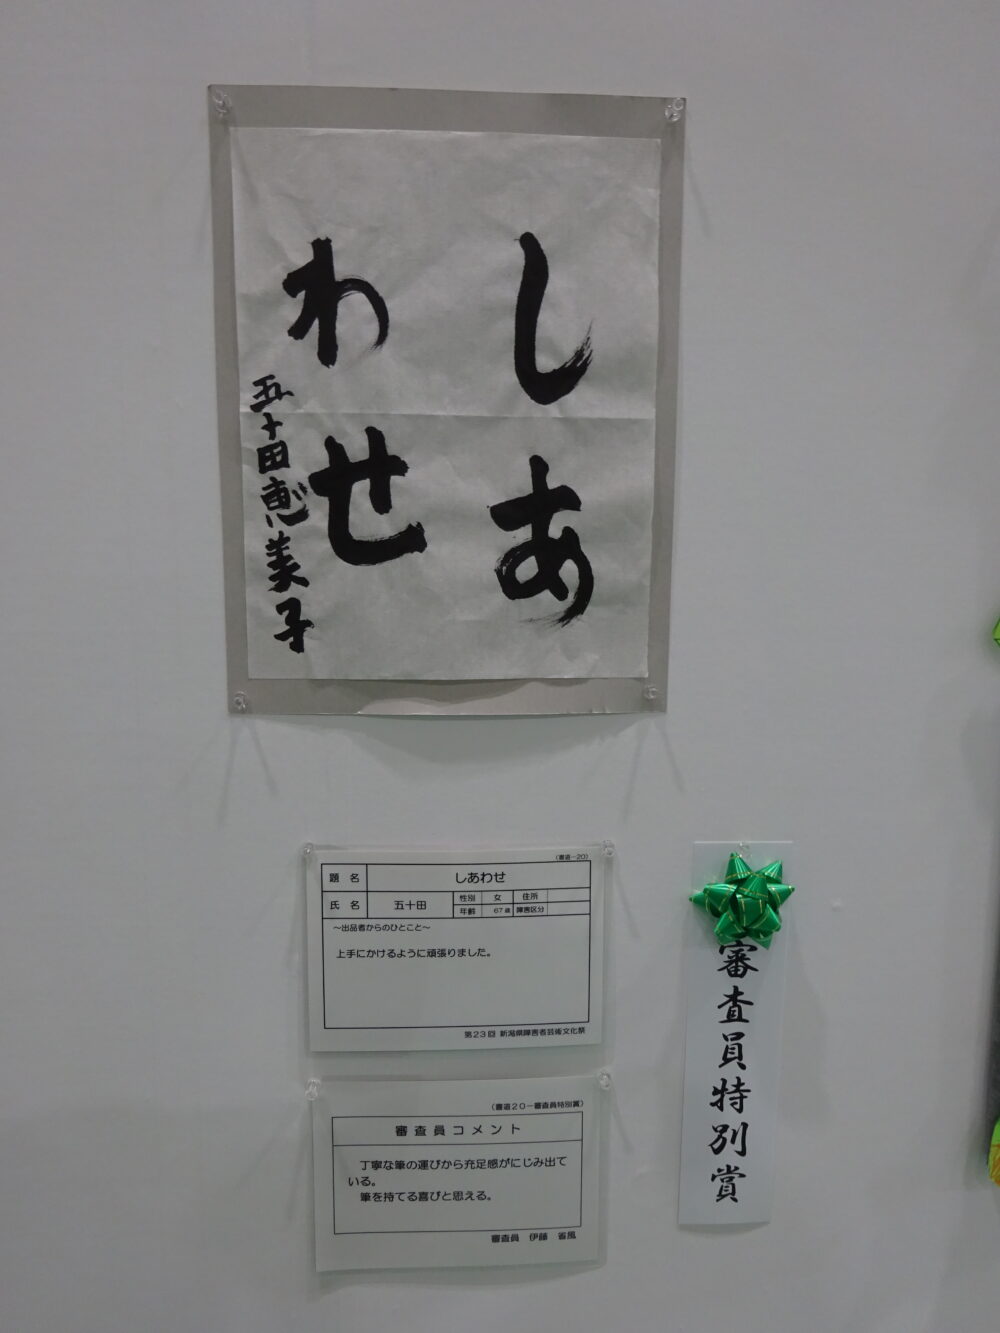 しあ
わせ
五十田恵美子
(書道-20)
題 名 しあわせ
氏 名 五十田 性別 女 住所
年齢 67歳 障害区分
～出品者からのひとこと～
上手にかけるように頑張りました。
第23回 新潟県障害者芸術文化祭
(書道20-審査員特別賞)
審査員コメント
丁寧な筆の運びから充足感がにじみ出て
いる。
筆を持てる喜びと思える。
審査員 伊藤 省風
審査員特別賞